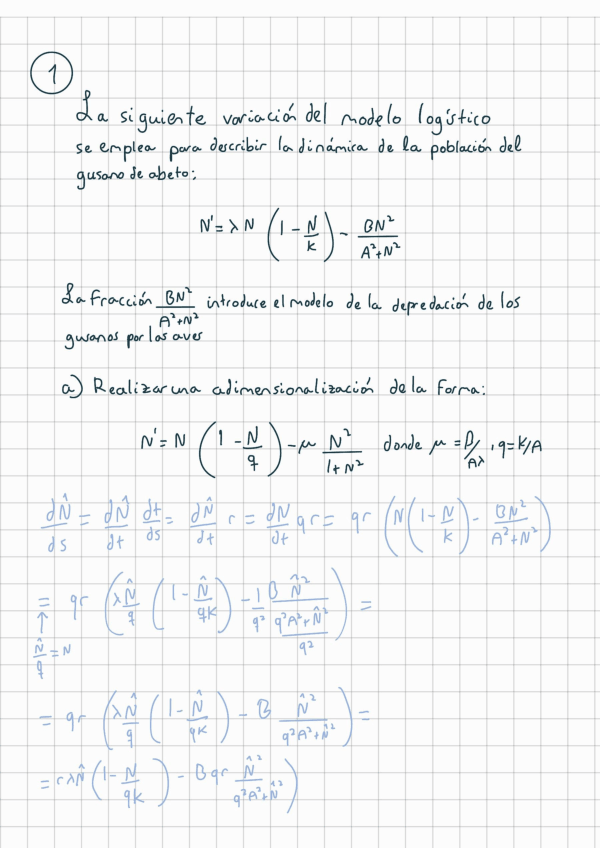 1
La siguiente variación del modelo logístico
se emplea para describir la dinámica de la población del
gusano de abeto:
N' = λN (1 - N/K) - BN²/(A²+N²)
La fracción BN²/(A²+N²) introduce el modelo de la depredación de los
gusanos por las aves
a) Realizar una adimensionalización de la forma:
N' = N (1 - N/q) - μ N²/(1+N²) donde μ = B/Aλ, q = K/A
dN̂/ds = dN̂/dt dt/ds = dN̂/dt r = dN/dt qr = qr (N(1 - N/K) - BN²/(A²+N²))
= qr (λN̂/q (1 - N̂/qK) - 1/q² B N̂²/((q²A²+N̂²)/q²)) =
↑
N̂/q = N
= qr (λN̂/q (1 - N̂/qK) - B N̂²/(q²A²+N̂²)) =
= rλN̂ (1 - N/qK) - Bqr N̂²/(q²A²+N̂²))